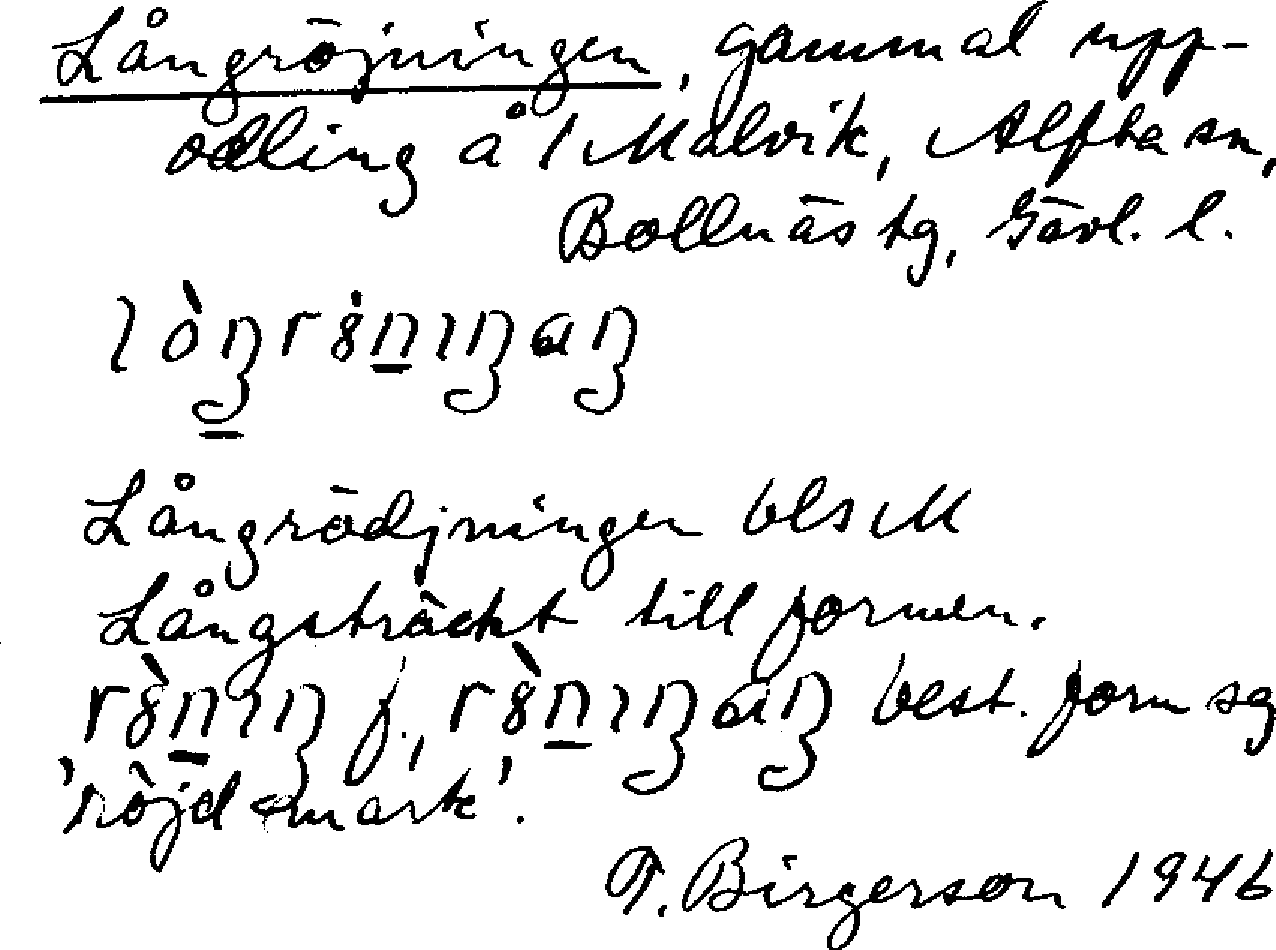 Långröjningen, gammal upp-
odling å 1 Malvik, Alfta sn,
Bollnäs tg, Gävl. l.
Långrödjningen bls M
Långsträckt till formen.
f., best. form sg
'röjd mark'.
T. Birgerson 1946